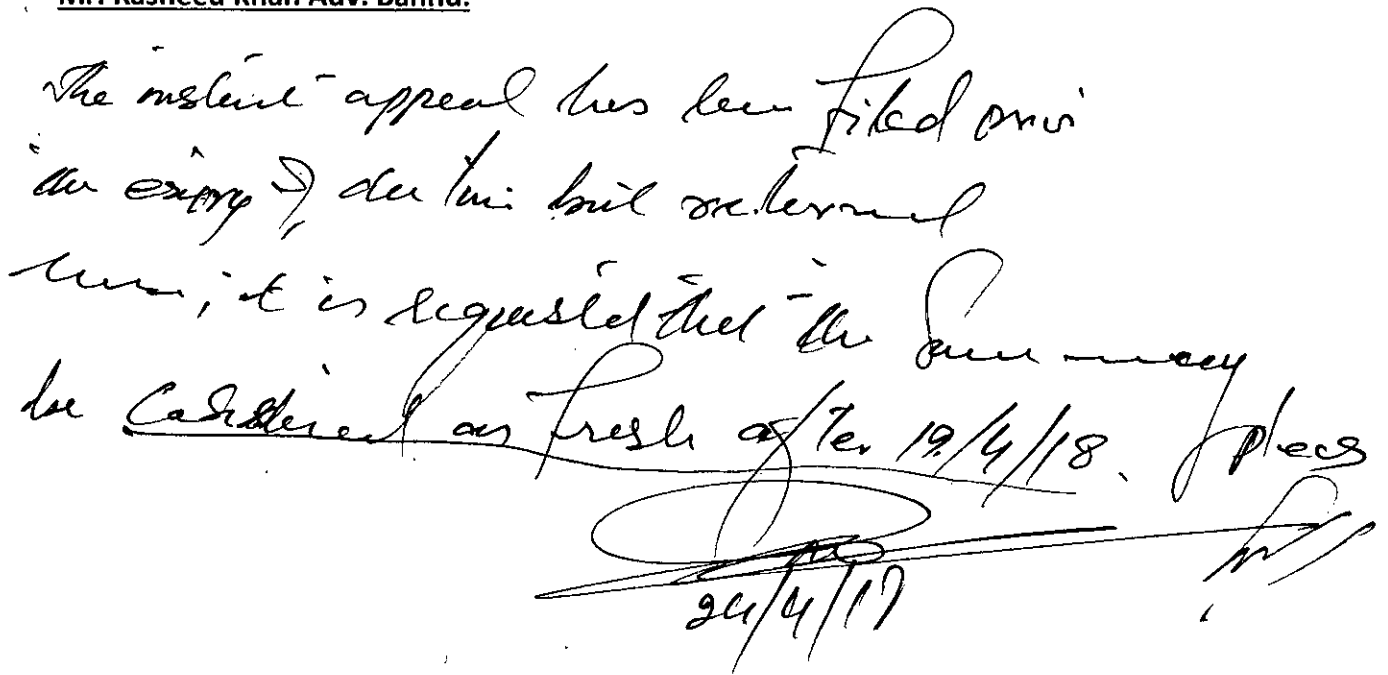 Mr. Rasheed Khan Adv. Bannu.
The instent appeal hes been filed
the expiry of due time but returned
it is requested that the same may
be Considered as fresh after 19/4/18. pleas
24/4/17